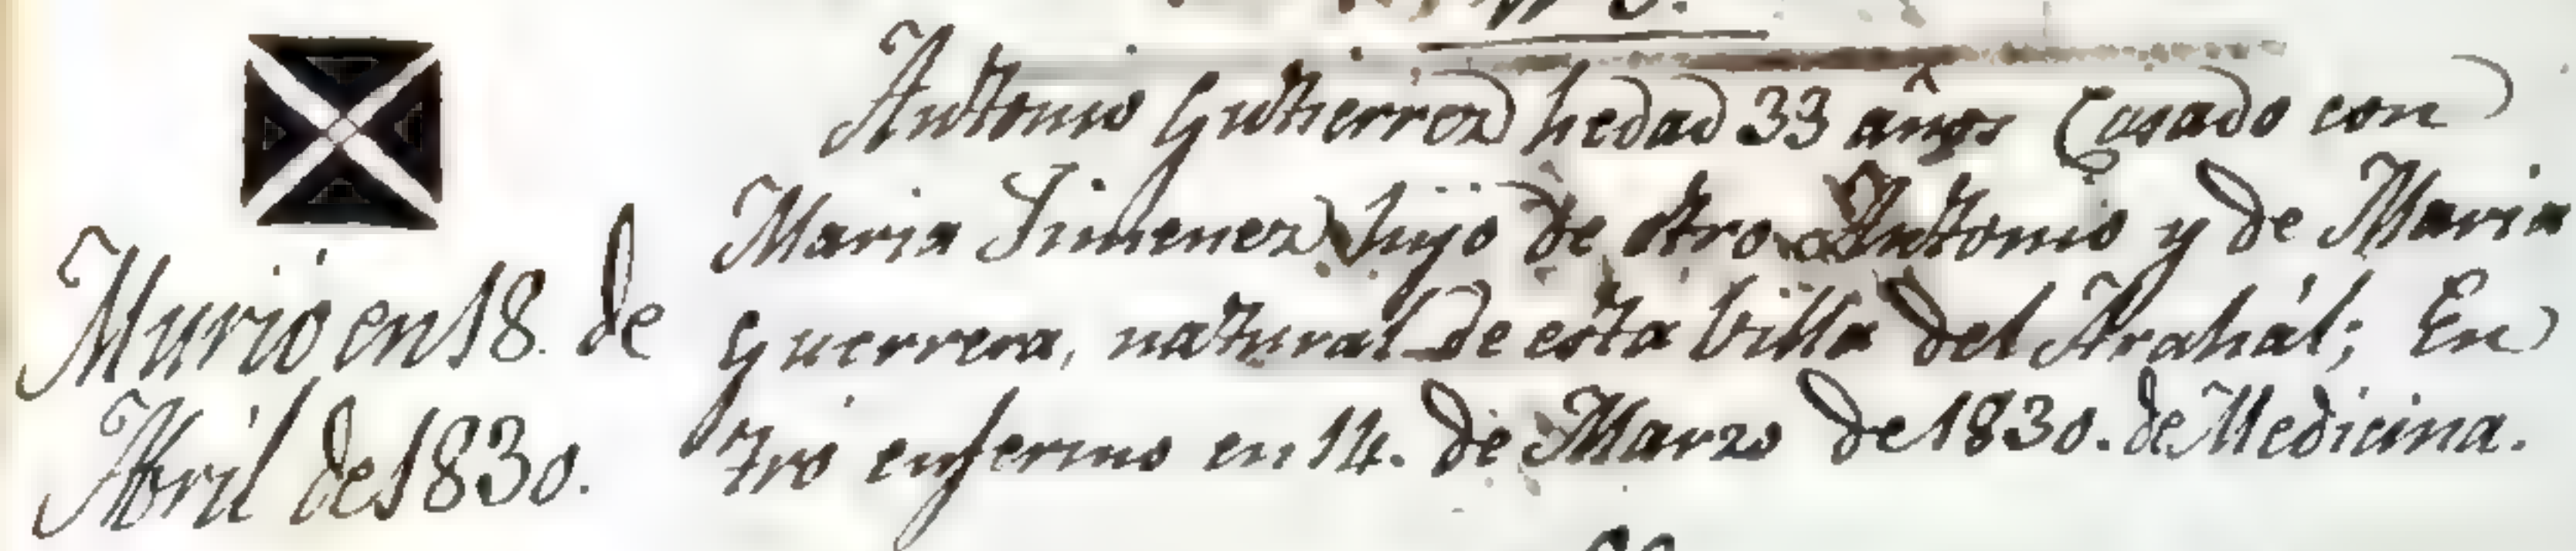 Antonio Gutierrez hedad 33 años Casado con
Maria Jimenez hijo de otro Antonio y de Maria
Guerrera, natural de esta Villa del Arahál; En
tró enfermo en 14. de Marzo de 1830. de Medicina.
Murió en 18. de
Abril de 1830.